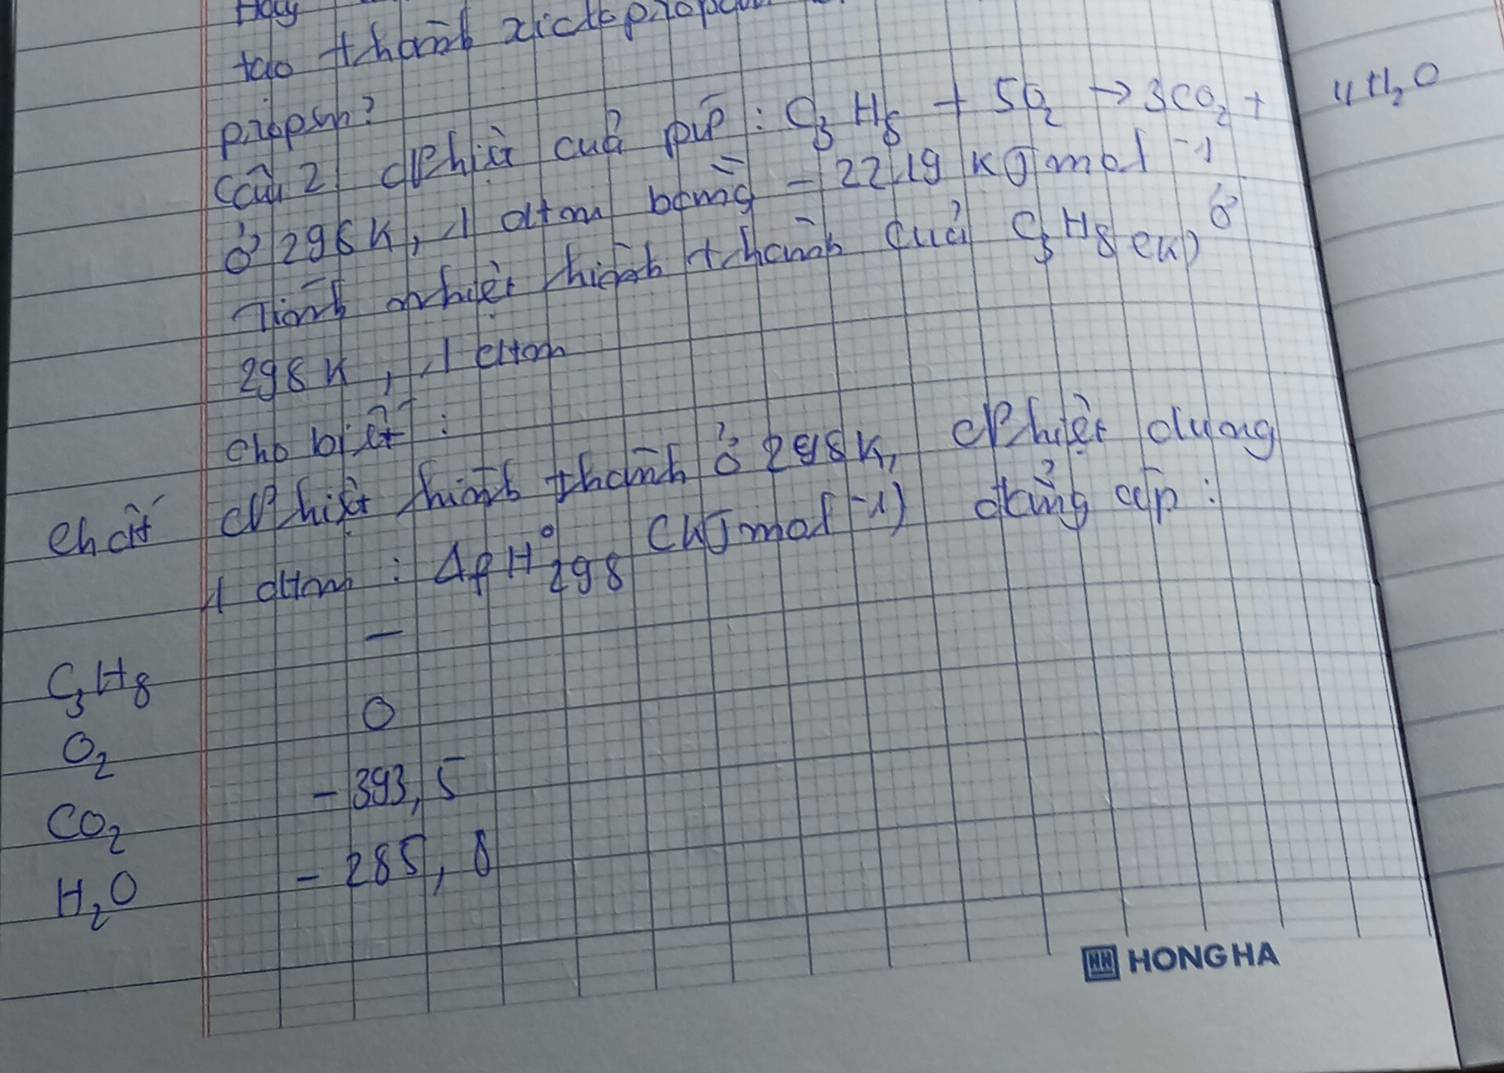 Hãy
tạo thành xiclopropan
propen?
Câu 2) Nhiệt của pư: C3H8 + 5O2 → 3CO2 + 4H2O
ở 298K, 1 atm bằng - 2219 KJmol⁻¹
Tính nhiệt hình thành của C3H8 (k) ở
298K, 1 atm
Cho biết:
Chất Nhiệt hình thành ở 298K, Nhiệt dung
1 atm: ΔfH°298 (KJmol⁻¹) đẳng áp:
C3H8 -
O2 0
CO2 - 393,5
H2O - 285,8
HH HONG HA